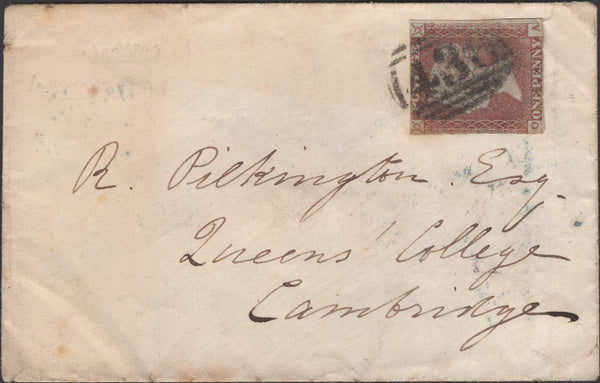 ONE PENNY
R. Pilkington. Esq.
Queens' College
Cambridge